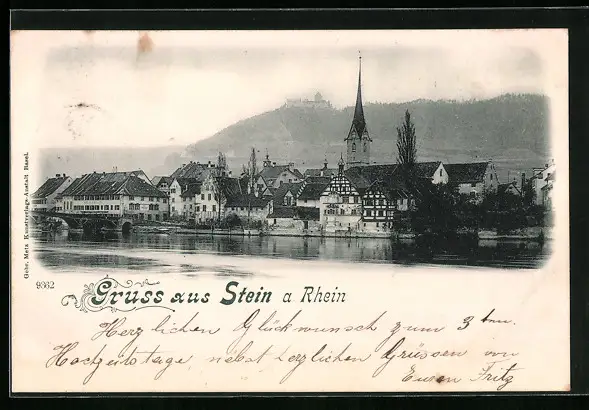 Gebr. Metz Kunstverlags-Anstalt Basel.
9362
Gruss aus Stein a Rhein
Herzlichen Glückwunsch zum 3ten.
Hochzeitstage nebst herzlichen Grüssen von
Euren Fritz